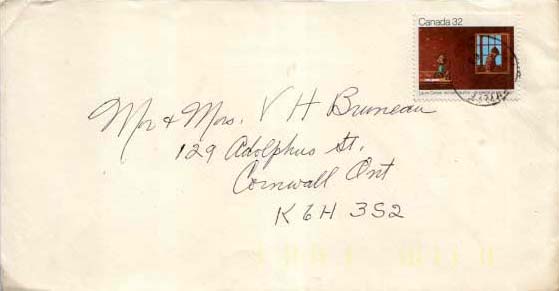 Canada 32
Mr & Mrs. V H Bruneau
129 Adolphus St.
Cornwall Ont
K6H 3S2